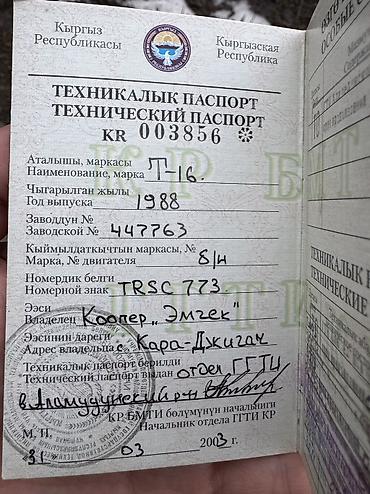 Кыргыз Республикасы
Кыргызская Республика
ТЕХНИКАЛЫК ПАСПОРТ
ТЕХНИЧЕСКИЙ ПАСПОРТ
KR 003856
Аталышы, маркасы
Наименование, марка Т-16.
Чыгарылган жылы
Год выпуска 1988
Заводдун №
Заводской № 447763
Кыймылдаткычтын маркасы, №
Марка, № двигателя б/н
Номердик белги
Номерной знак TRSC 773
Ээси
Владелец Коопер „Эмгек"
Ээсинин дареги
Адрес владельца с. Кара-Джигач
Техникалык паспорт берилди
Технический паспорт выдан отдел ГГТИ
в Аламудунский р-н
КР БМТИ бөлүмүнүн начальниги
Начальник отдела ГГТИ КР
М. П.
31 03 2003 г.